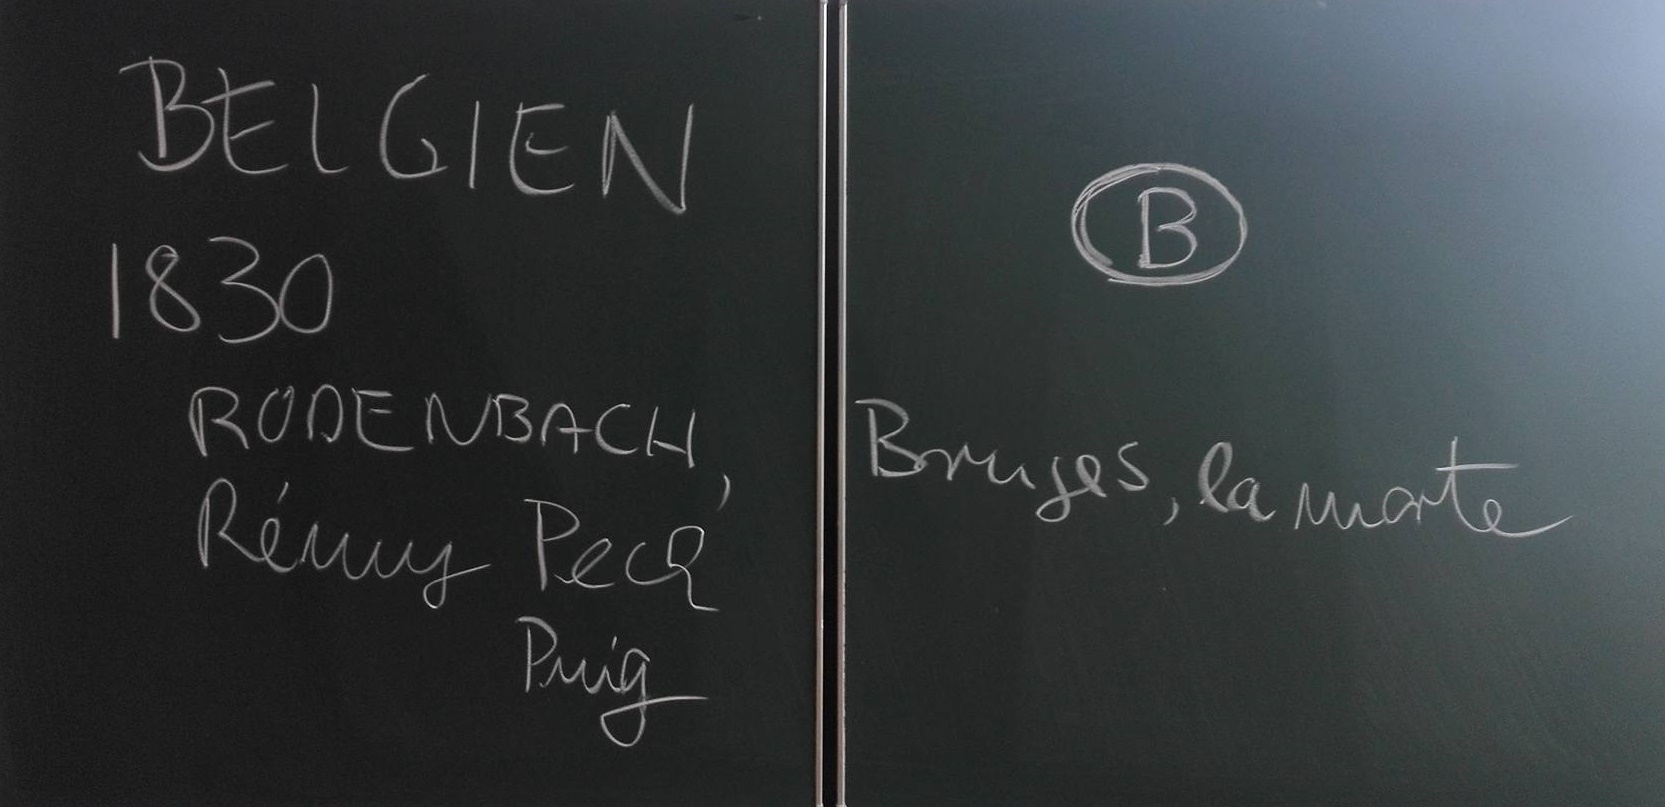 BELGIEN
1830
RODENBACH,
Rémy Pech
Puig
B
Bruges, la morte